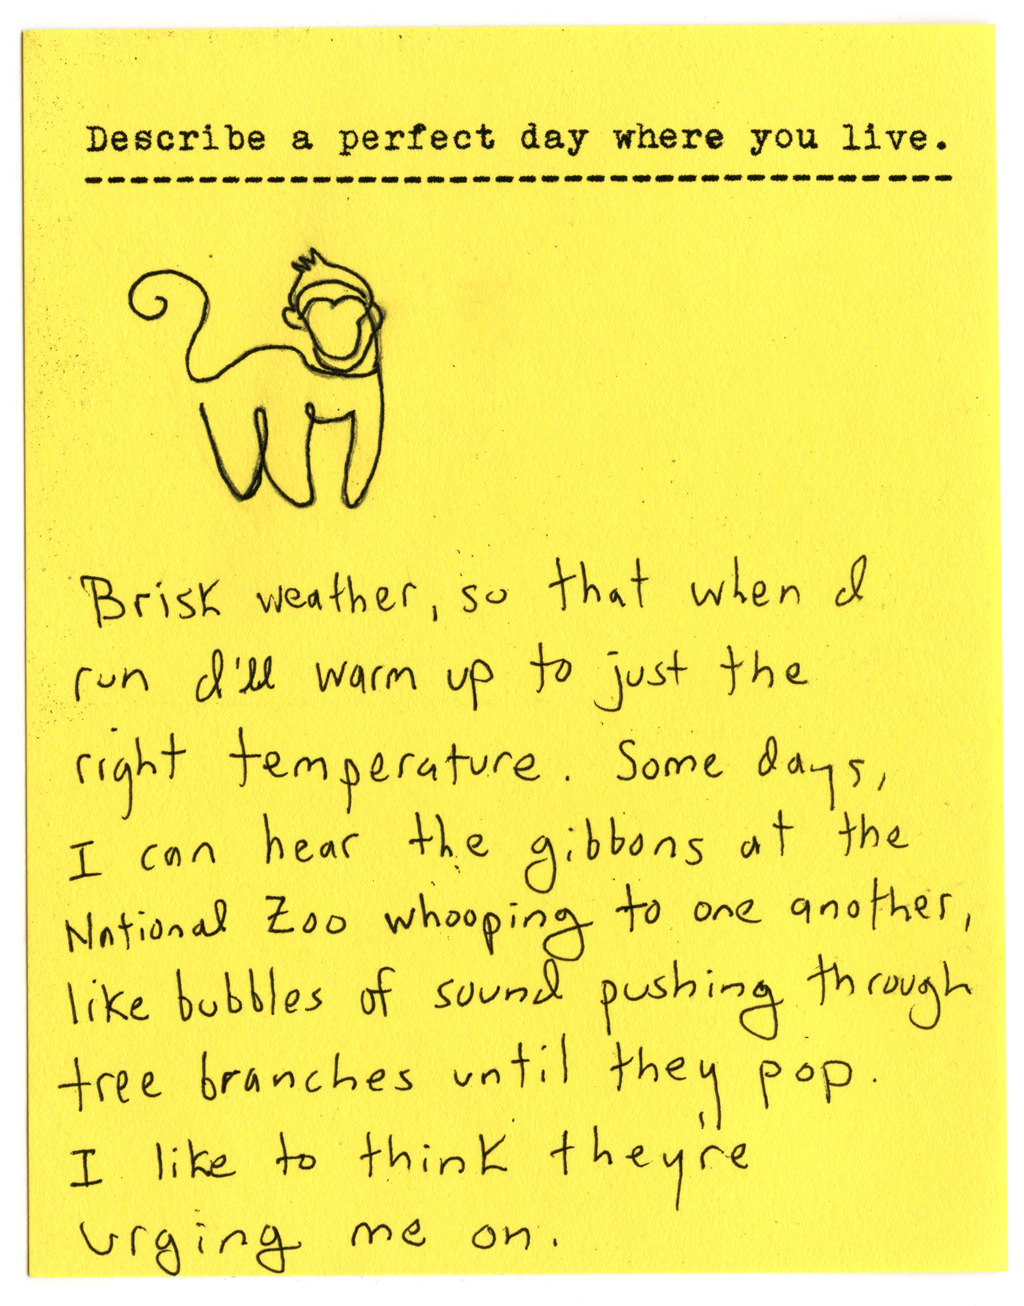 Describe a perfect day where you live.
Brisk weather, so that when I
run I'll warm up to just the
right temperature. Some days,
I can hear the gibbons at the
National Zoo whooping to one another,
like bubbles of sound pushing through
tree branches until they pop.
I like to think they're
urging me on.